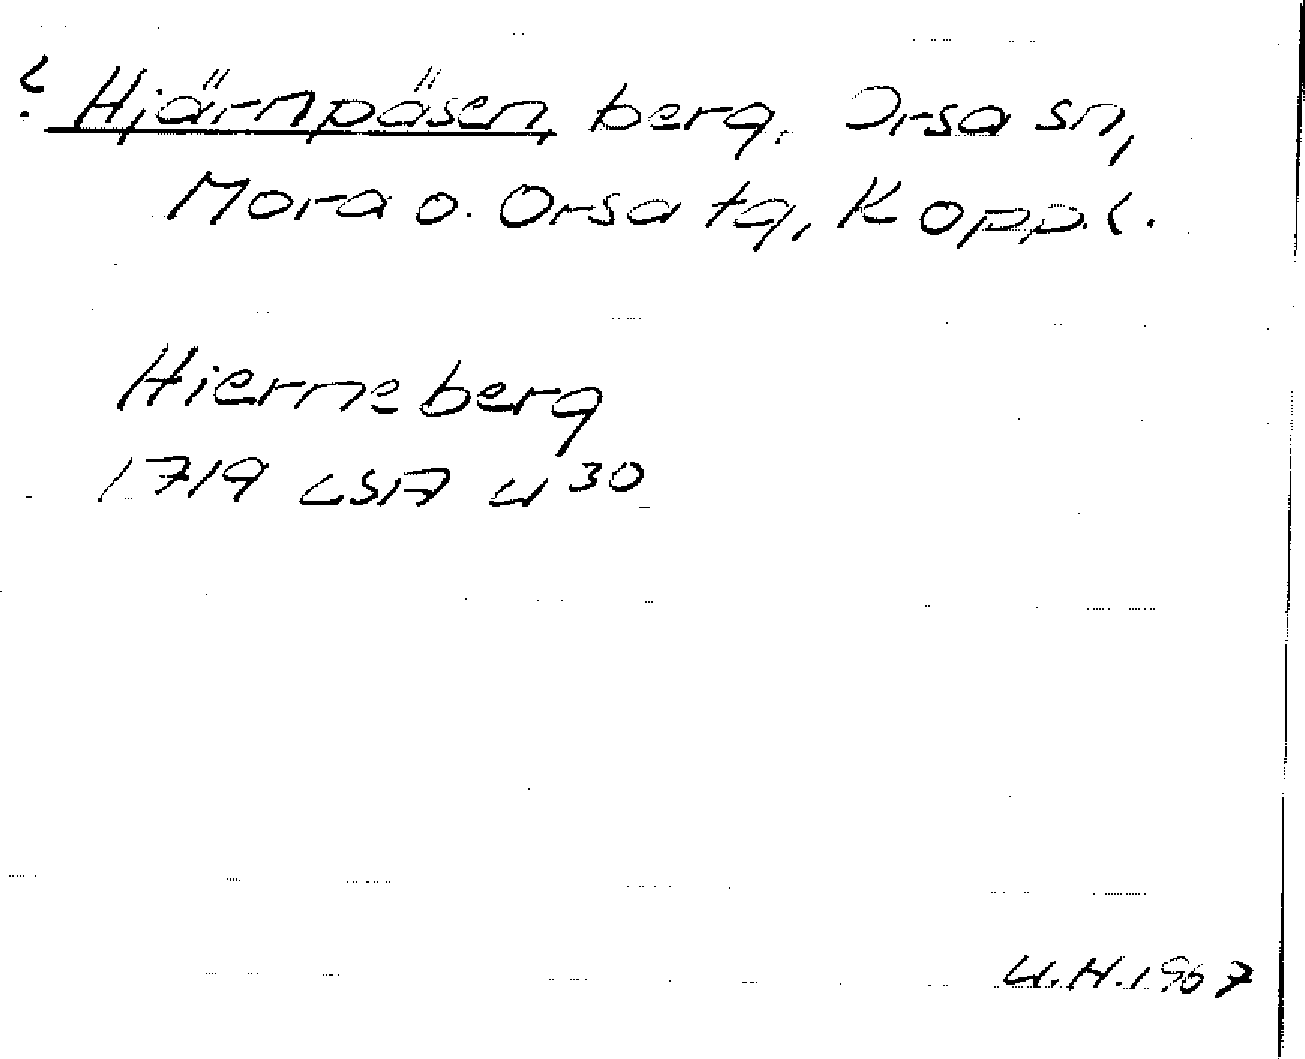 ? Hjärnpäsen, berg. Orsa sn,
Mora o. Orsa tg, Kopp.l.
Hierneberg
1719 LSA U 30
U.H. 1967